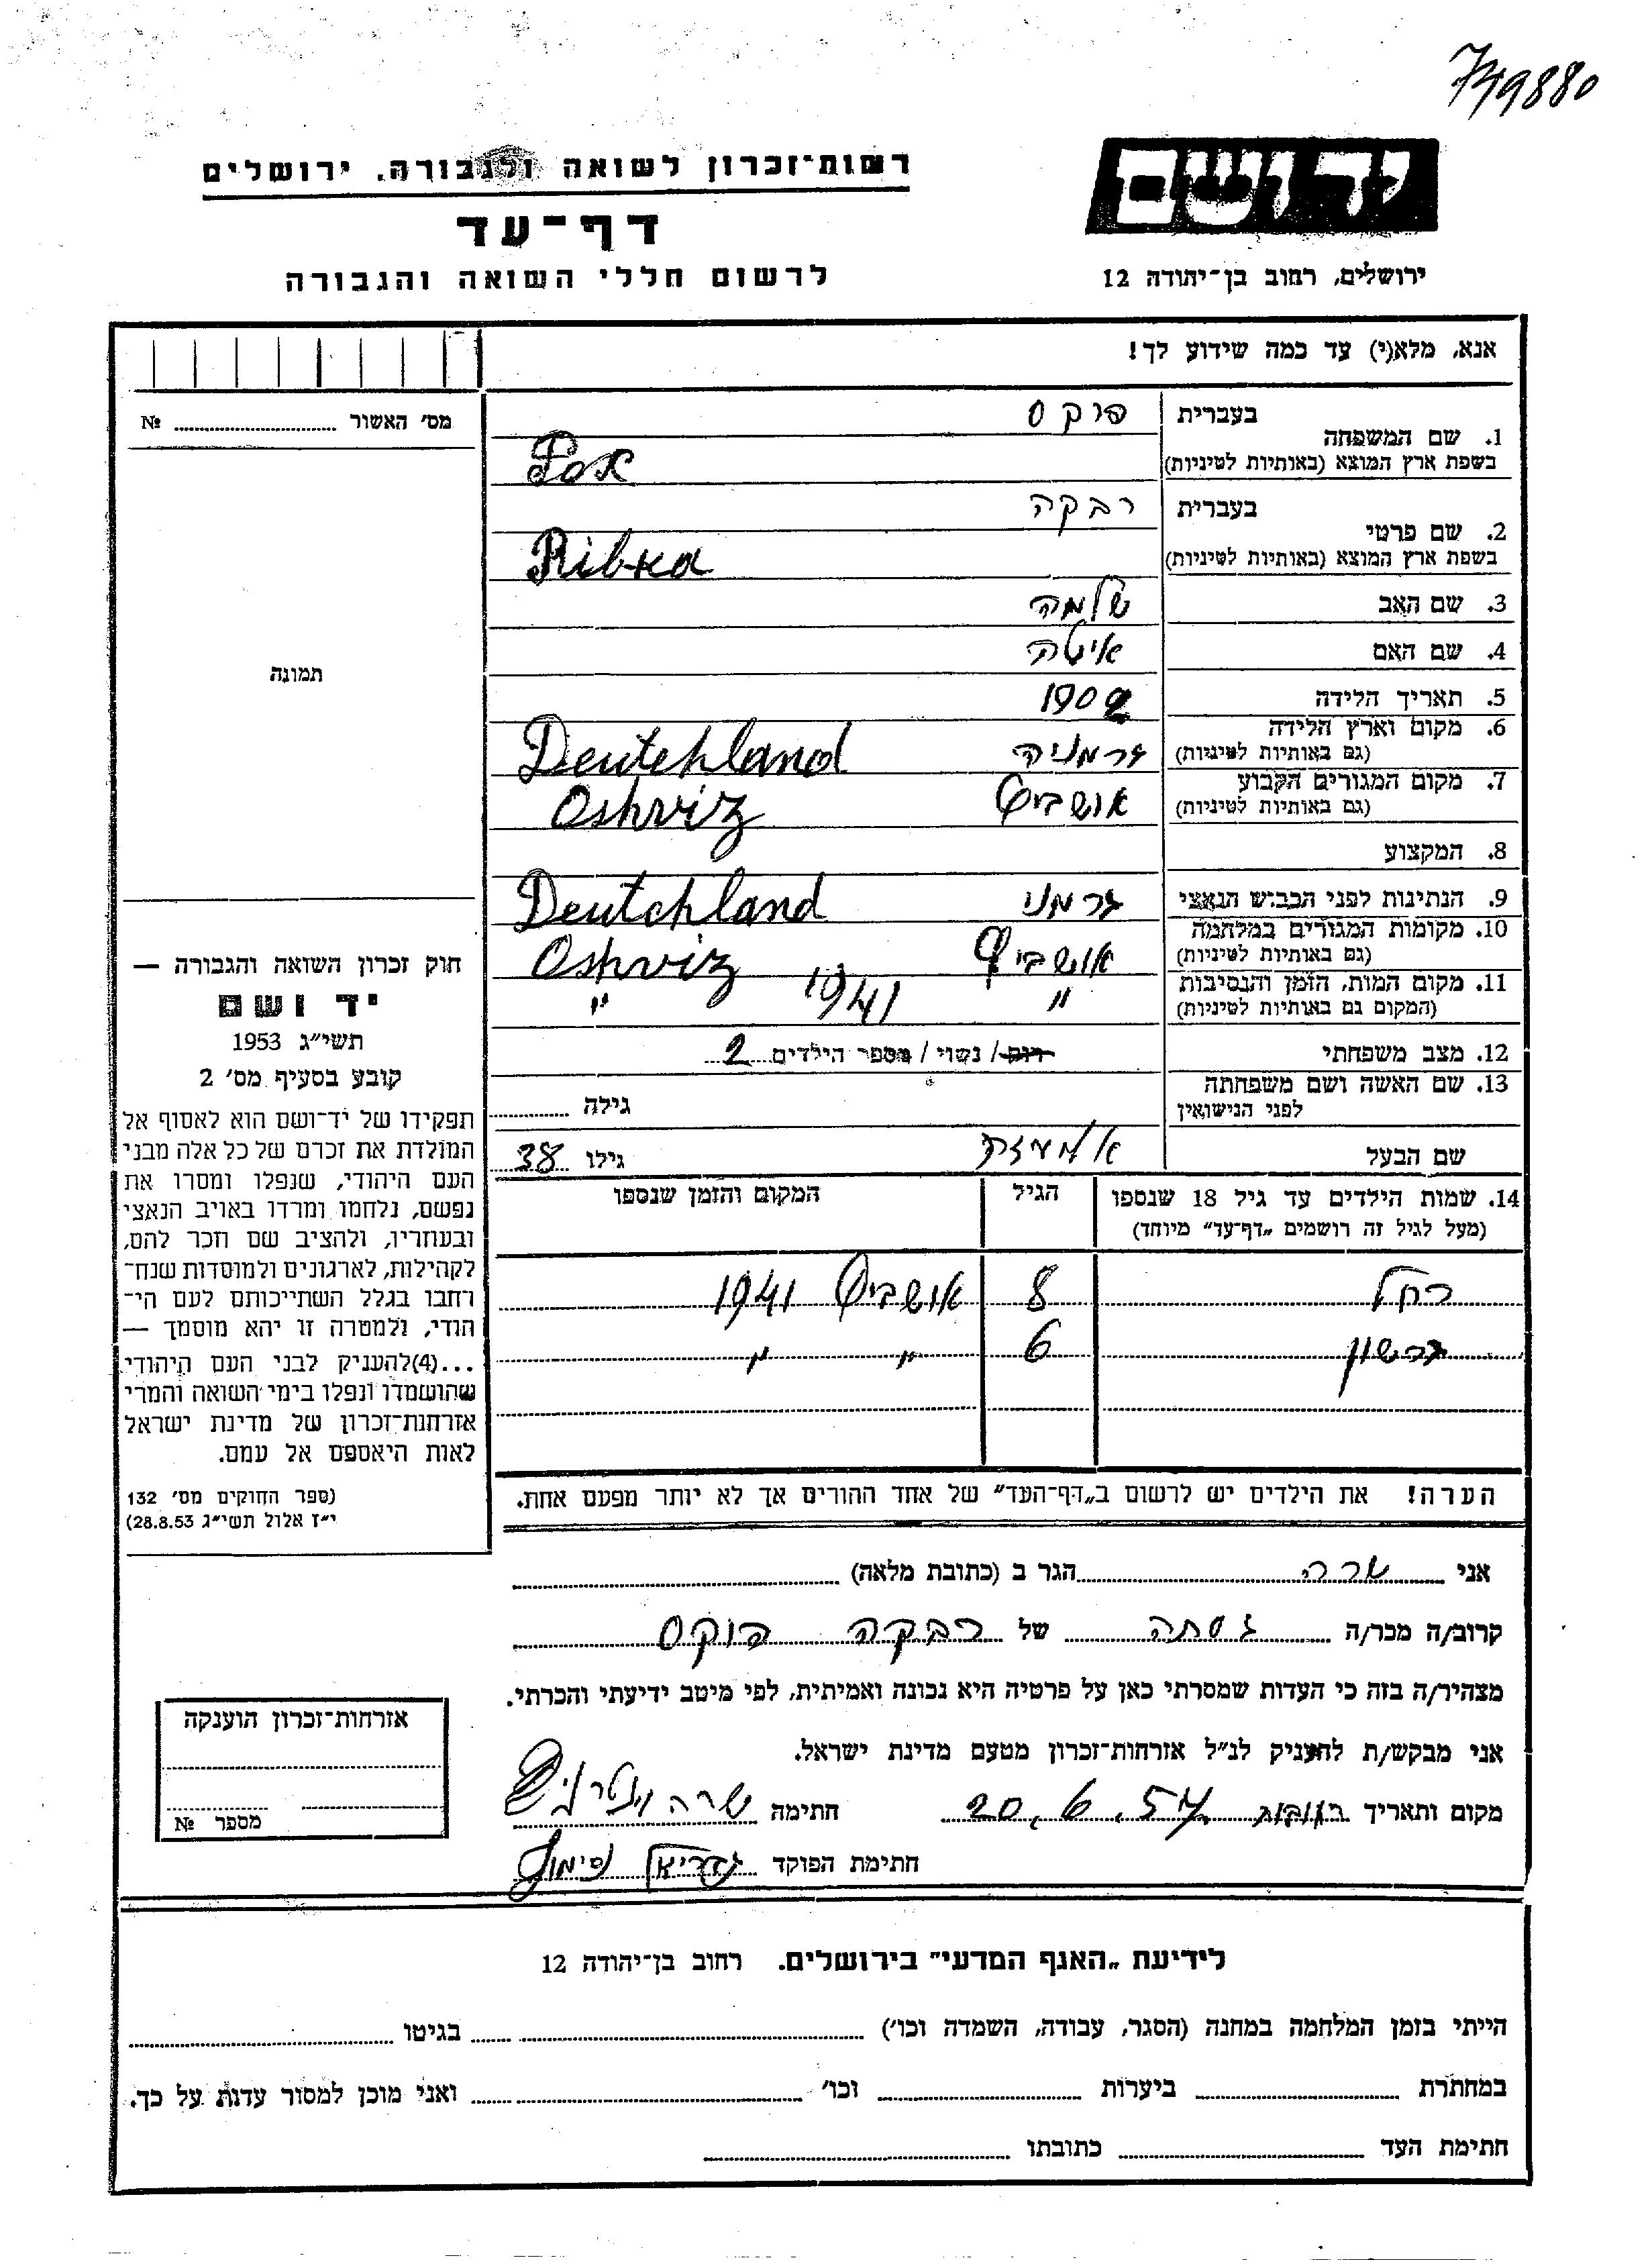 779880
יד ושם
רשות־זכרון לשואה ולגבורה, ירושלים
דף־עד
לרשום חללי השואה והגבורה
ירושלים, רחוב בן־יהודה 12
אנא, מלא(י) עד כמה שידוע לך!
מס׳ האשור ........ №
תמונה
1. שם המשפחה
בעברית פוקס
בשפת ארץ המוצא (באותיות לטיניות) Fox
2. שם פרטי
בעברית רבקה
בשפת ארץ המוצא (באותיות לטיניות) Ribka
3. שם האב שלמה
4. שם האם איטה
5. תאריך הלידה 1902
6. מקום וארץ הלידה
(גם באותיות לטיניות) גרמניה Deutchland
7. מקום המגורים הקבוע
(גם באותיות לטיניות) אושביץ Oshviz
8. המקצוע
9. הנתינות לפני הכבוש הנאצי גרמני Deutchland
10. מקומות המגורים במלחמה
(גם באותיות לטיניות) אושביץ Oshviz
11. מקום המות, הזמן והנסיבות
(המקום גם באותיות לטיניות) " 1941 "
12. מצב משפחתי רווק / נשוי / מספר הילדים 2
13. שם האשה ושם משפחתה
לפני הנישואין גילה
שם הבעל גילו 38
14. שמות הילדים עד גיל 18 שנספו
(מעל לגיל זה רושמים „דף־עד״ מיוחד)
הגיל
המקום והזמן שנספו
רחל 8 אושביץ 1941
גרשון 6 " "
הערה! את הילדים יש לרשום ב„דף־העד״ של אחד ההורים אך לא יותר מפעם אחת.
חוק זכרון השואה והגבורה —
יד ושם
תשי״ג 1953
קובע בסעיף מס׳ 2
תפקידו של יד־ושם הוא לאסוף אל
המולדת את זכרם של כל אלה מבני
העם היהודי, שנפלו ומסרו את
נפשם, נלחמו ומרדו באויב הנאצי
ובעוזריו, ולהציב שם וזכר להם,
לקהילות, לארגונים ולמוסדות שנח־
רבו בגלל השתייכותם לעם הי־
הודי, ולמטרה זו יהא מוסמך —
...(4)להעניק לבני העם היהודי
שהושמדו ונפלו בימי השואה והמרי
אזרחות־זכרון של מדינת ישראל
לאות היאספם אל עמם.
(ספר החוקים מס׳ 132
י״ז אלול תשי״ג 28.8.53)
אני שרה הגר ב (כתובת מלאה)
קרוב/ה מכר/ה גיסתה של רבקה פוקס
מצהיר/ה בזה כי העדות שמסרתי כאן על פרטיה היא נכונה ואמיתית, לפי מיטב ידיעתי והכרתי.
אני מבקש/ת להעניק לנ״ל אזרחות־זכרון מטעם מדינת ישראל.
מקום ותאריך רחובות 20.6.57 חתימה שרה
חתימת הפוקד
אזרחות־זכרון הוענקה
מספר №
לידיעת „האגף המדעי״ בירושלים. רחוב בן־יהודה 12
הייתי בזמן המלחמה במחנה (הסגר, עבודה, השמדה וכו׳) בגיטו
במחתרת ביערות וכו׳ ואני מוכן למסור עדות על כך.
חתימת העד כתובתו